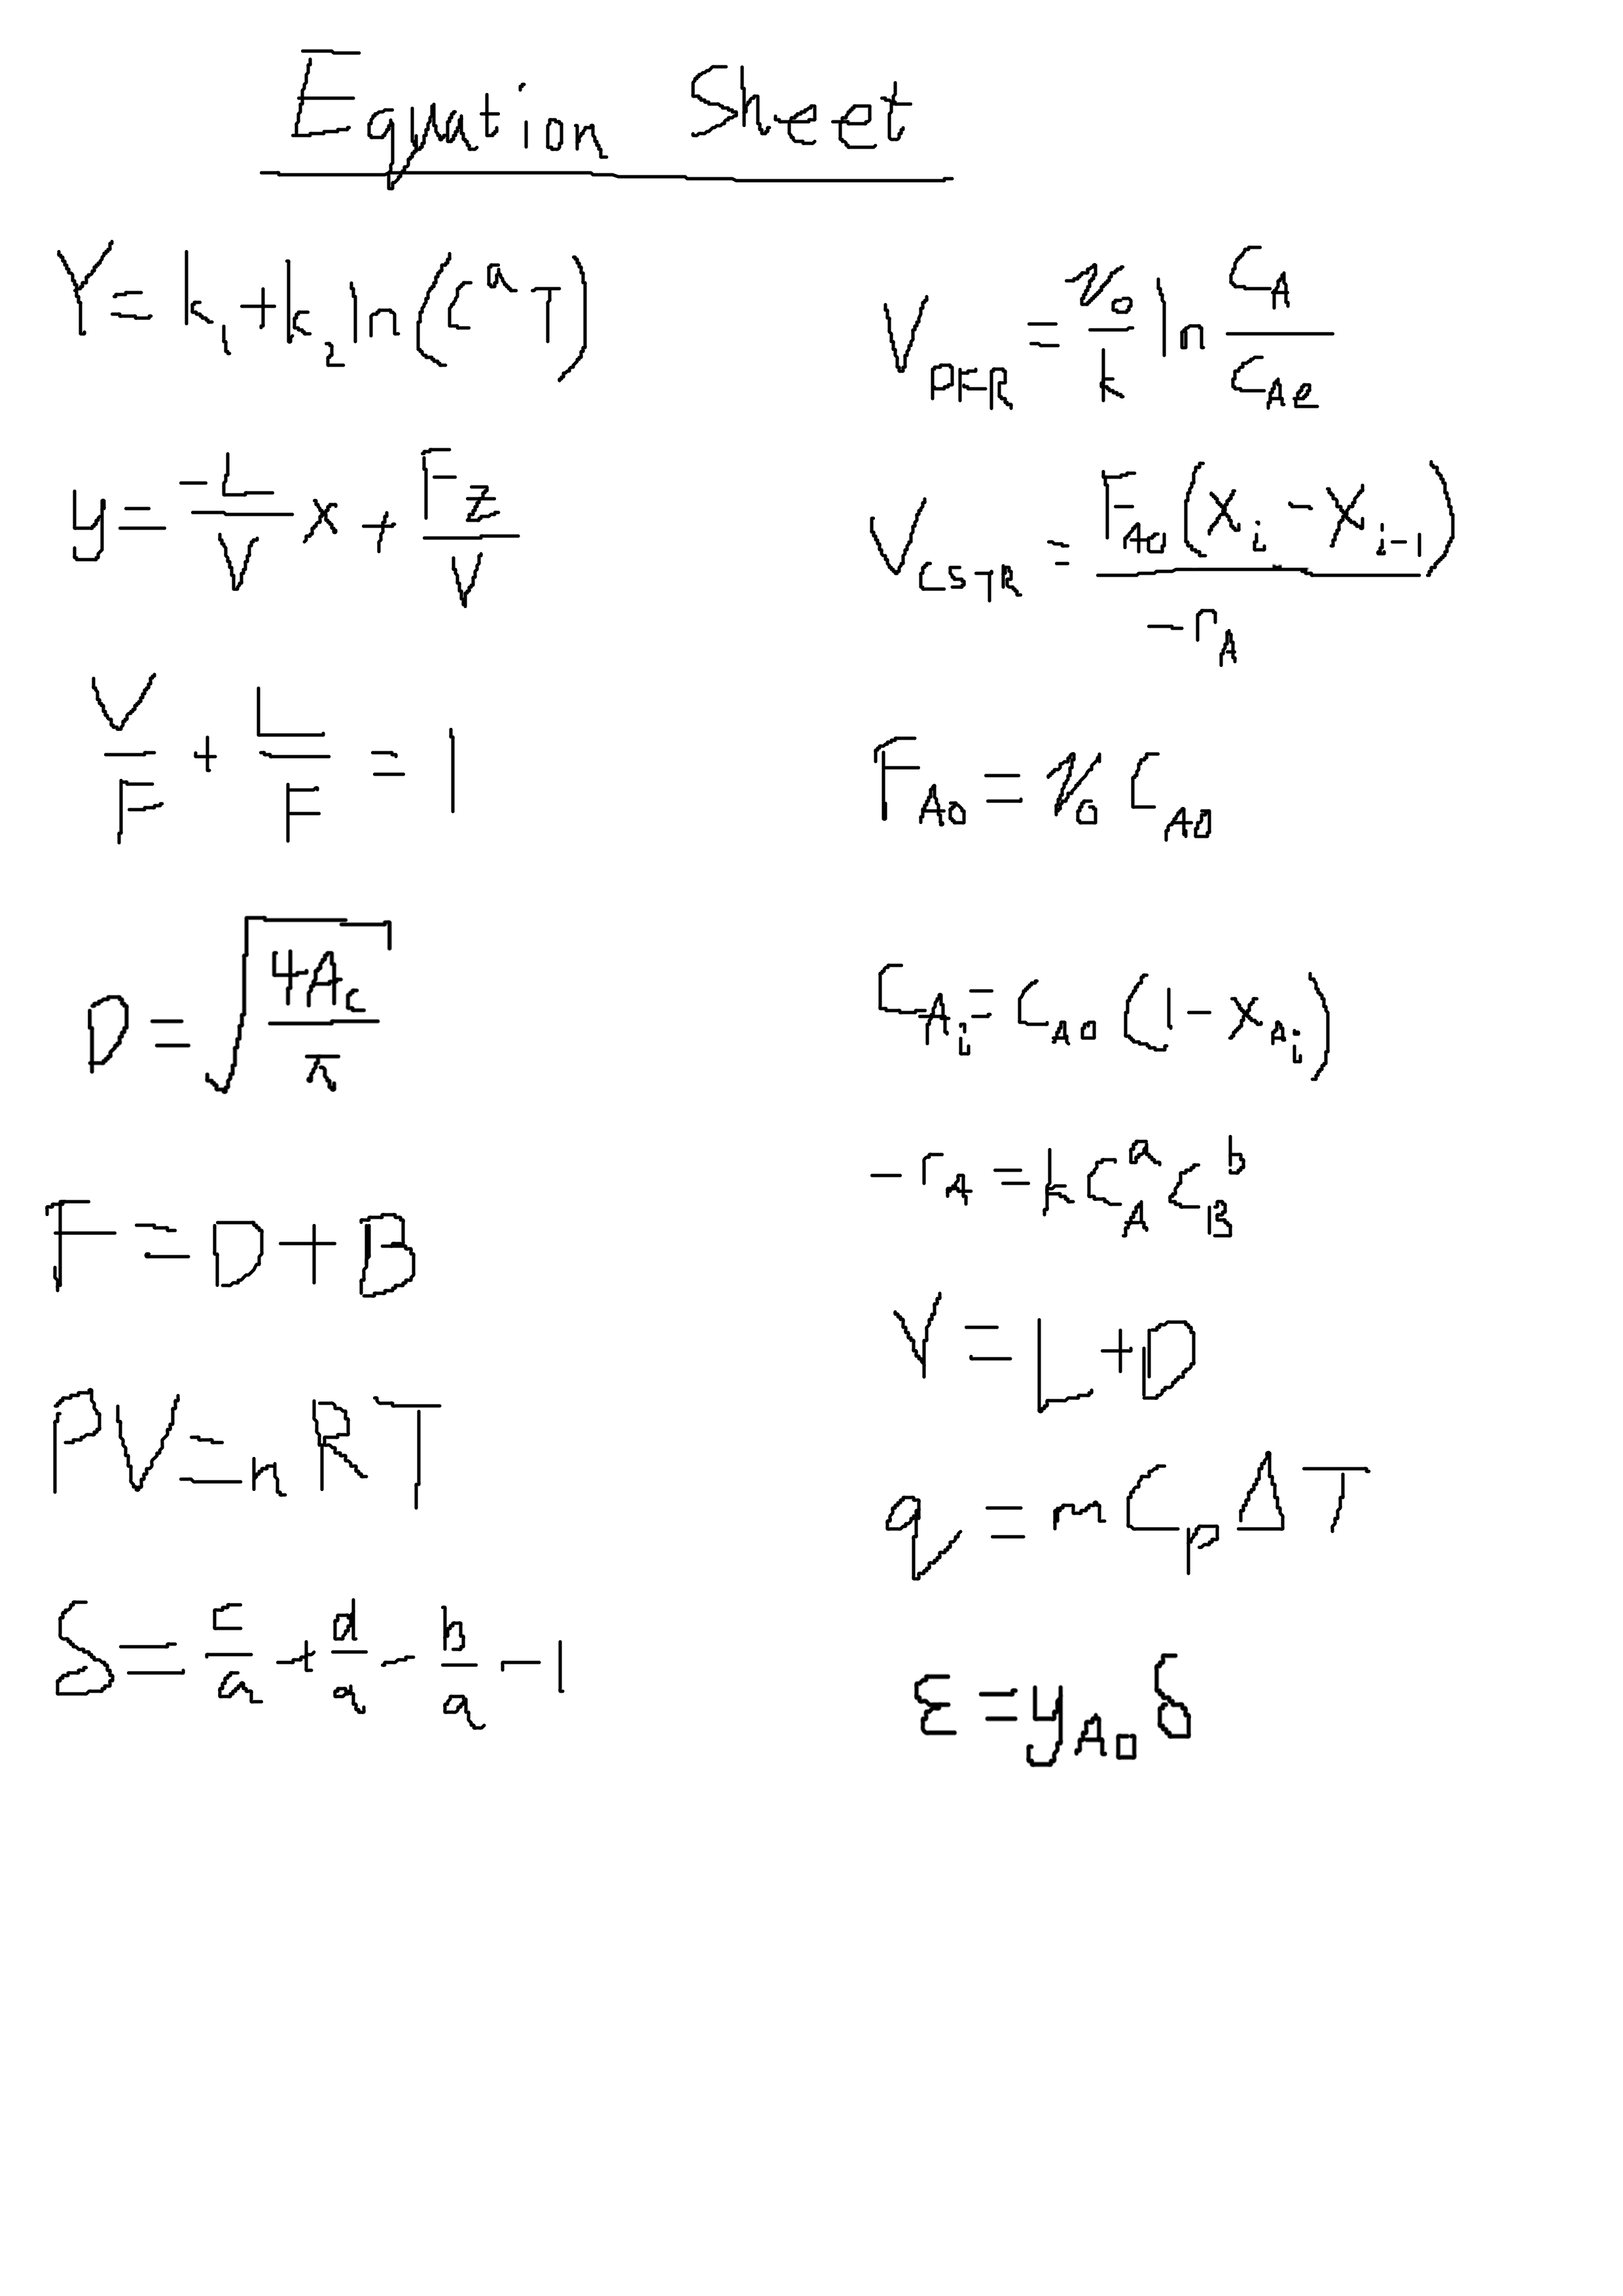 Equation Sheet
Y = k₁ + k₂ ln(Cᵃ T)
y = -L/V x + Fz/V
V/F + L/F = 1
D = √(4A_c/π)
F = D + B
PV = nRT
S = c/a + d/a - b/a - 1
V_PFR = v₀/k ln C_A/C_Ae
V_CSTR = F_A0(X_i - X_i-1)/-r_A
F_A0 = v₀ C_A0
C_Ai = C_A0 (1 - X_Ai)
-r_A = k C_A^a C_B^b
V = L + D
q = m C_p ΔT
ε = y_A0 δ